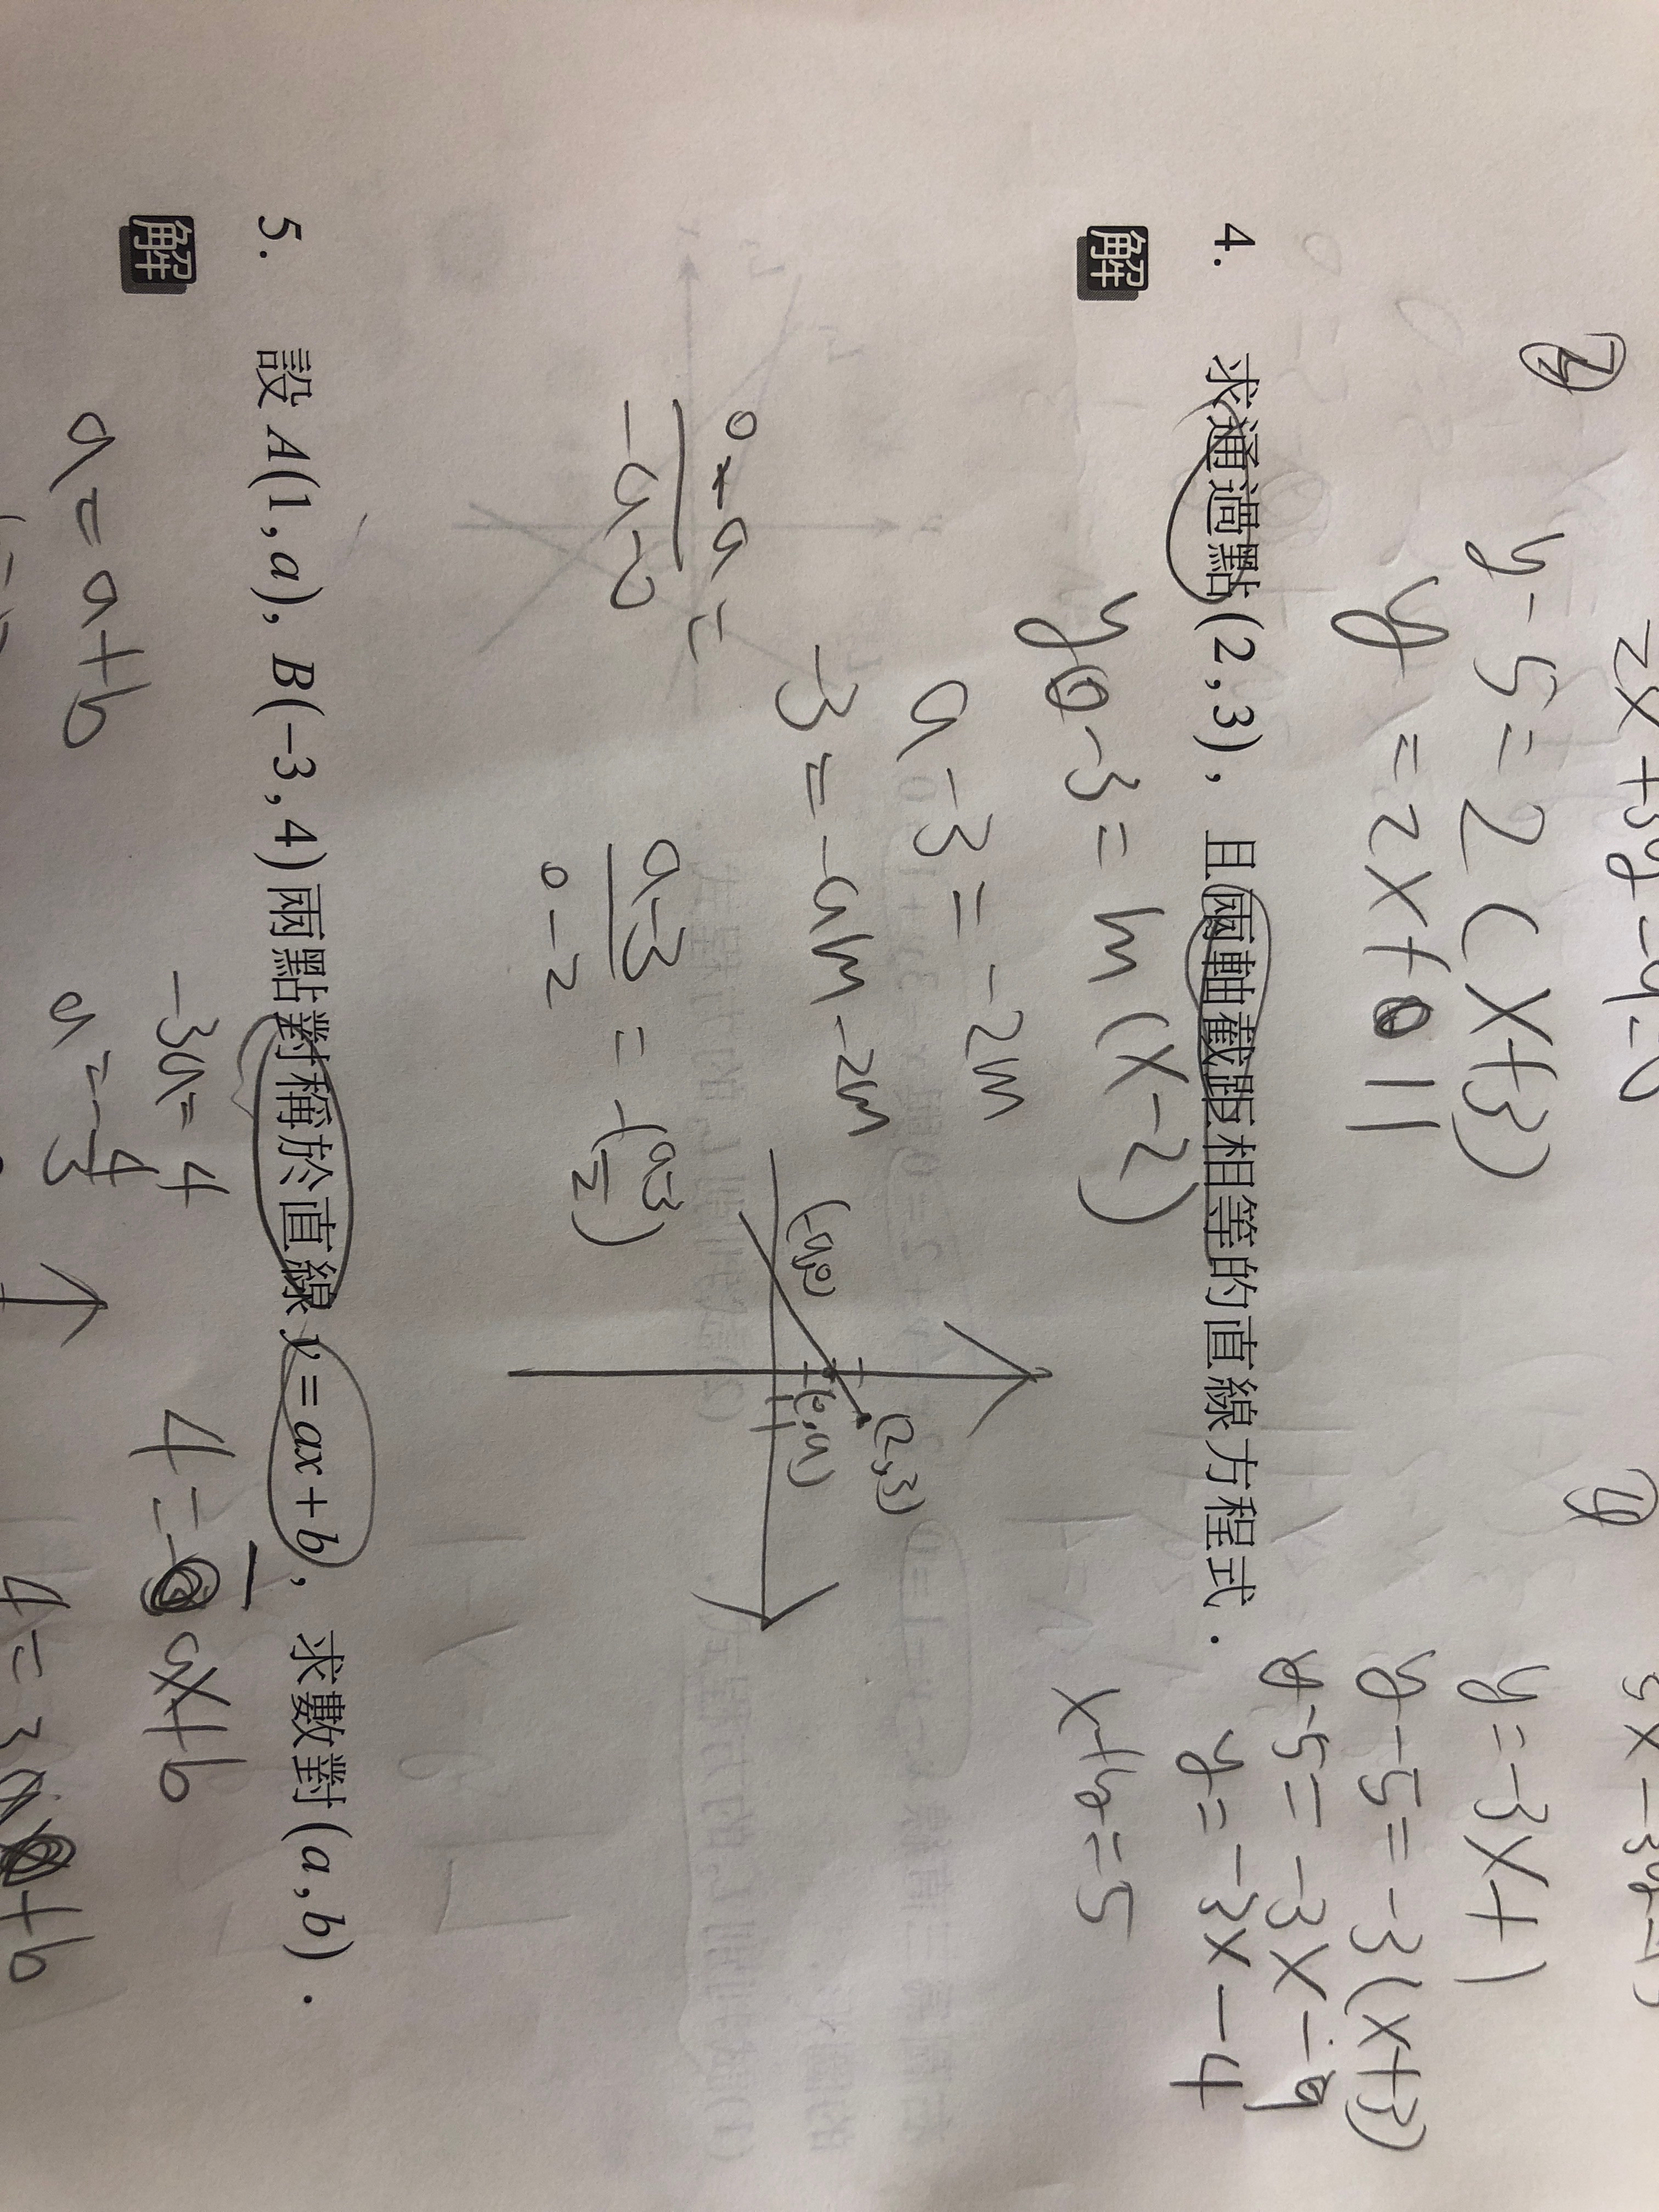 2x+3y-9=0
y-5=2(x+3)
y=2x+11
y=-3x+1
y-5=-3(x+3)
y-5=-3x-9
y=-3x-4
x+y=5
4. 求通過點(2,3),且兩軸截距相等的直線方程式.
解
y-3=m(x-2)
a-3=-2m
-3=-am-2m
0-a=
-a-0
a-3
0-2
=-(a-3
2)
(-a,0)
(0,a)
(2,3)
5. 設A(1,a), B(-3,4)兩點對稱於直線y=ax+b,求數對(a,b).
解
-3a=4
a=-4
3
4=-ax+b
a=a+b